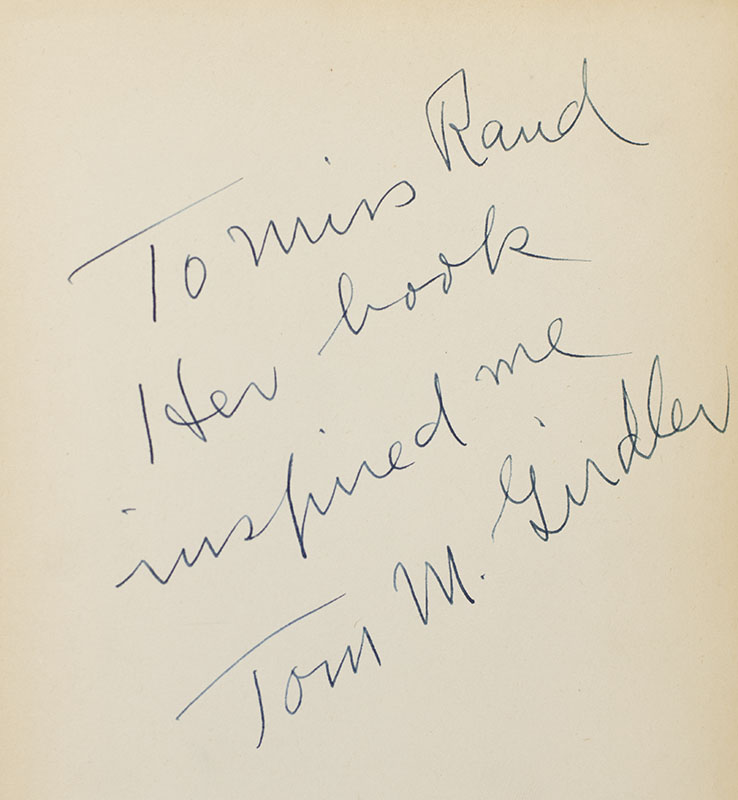 To Miss Rand
Her book
inspired me
Tom M. Girdler